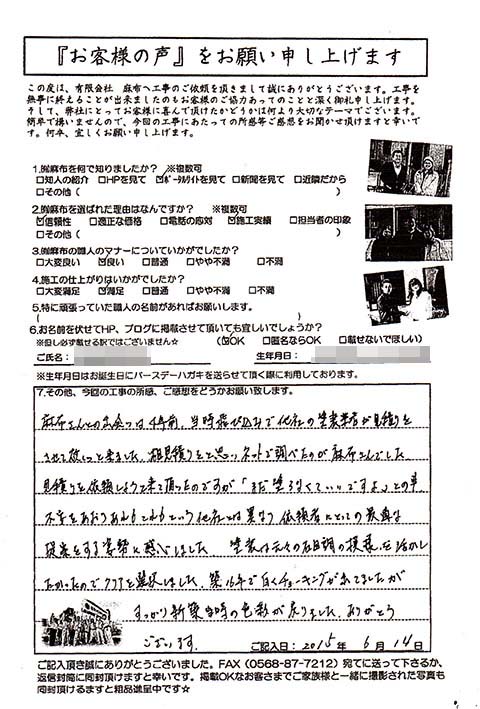 『お客様の声』をお願い申し上げます
この度は、有限会社　麻布へ工事のご依頼を頂きまして誠にありがとうございます。工事を
無事に終えることが出来ましたのもお客様のご協力あってのことと深く御礼申し上げます。
そして、弊社にとってお客様に喜んで頂けたかどうかは何より大切なテーマでございます。
簡単で構いませんので、今回の工事にあたっての所感等ご感想をお聞かせ頂けますと幸いで
す。何卒、宜しくお願い申し上げます。
1.㈲麻布を何で知りましたか？　※複数可
□知人の紹介　□HPを見て　☑ポータルサイトを見て　□新聞を見て　□近隣だから
□その他（　　　）
2.㈲麻布を選ばれた理由はなんですか？　※複数可
☑信頼性　□適正な価格　□電話の応対　☑施工実績　□担当者の印象
□その他（　　　）
3.㈲麻布の職人のマナーについていかがでしたか？
□大変良い　☑良い　□普通　□やや不満　□不満
4.施工の仕上がりはいかがでしたか？
□大変満足　☑満足　□普通　□やや不満　□不満
5.特に頑張っていた職人の名前があればお願いします。
（　　　）
6.お名前を伏せてHP、ブログに掲載させて頂いても宜しいでしょうか？
※但し必ず載せる訳ではございません☆　（☑OK　□匿名ならOK　□載せないでほしい）
ご氏名：　　　生年月日：
※生年月日はお誕生日にバースデーハガキを送らせて頂く際に利用しております。
7.その他、今回の工事の所感、ご感想をどうかお願い致します。
麻布さんとの出会いは4年前、当時飛び込みで他社の塗装業者が見積りを
させて欲しいと来ました。相見積りをと思いネットで調べたのが麻布さんでした
見積りを依頼しようと来て頂ったのですが「まだ塗らなくていいですよ」との事
不安をあおりあれもこれもという他社とは異なり依頼者にとっての最良な
提案をする姿勢に感心しました　塗装は元々の石目調の模様を活かし
たかったのでクリアを選択しました。築16年で白くチョーキングが出てましたが
すっかり新築当時の色彩が戻りました、ありがとう
ございます。　ご記入日：2015年　6月　14日
ご記入頂き誠にありがとうございました。FAX（0568-87-7212）宛てに送って下さるか、
返信封筒に同封頂けますと幸いです。掲載OKなお客さまでご家族様と一緒に撮影された写真も
同封頂けるますと粗品進呈中です☆